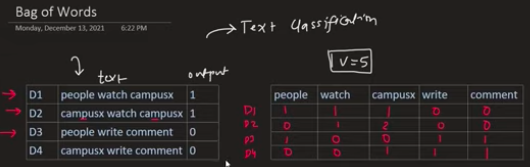 Bag of Words
Monday, December 13, 2021 6:22 PM
→ Text Classification
text output
D1 people watch campusx 1
D2 campusx watch campusx 1
D3 people write comment 0
D4 campusx write comment 0
V=5
people watch campusx write comment
D1 1 1 1 0 0
D2 0 1 2 0 0
D3 1 0 0 1 1
D4 0 0 1 1 1